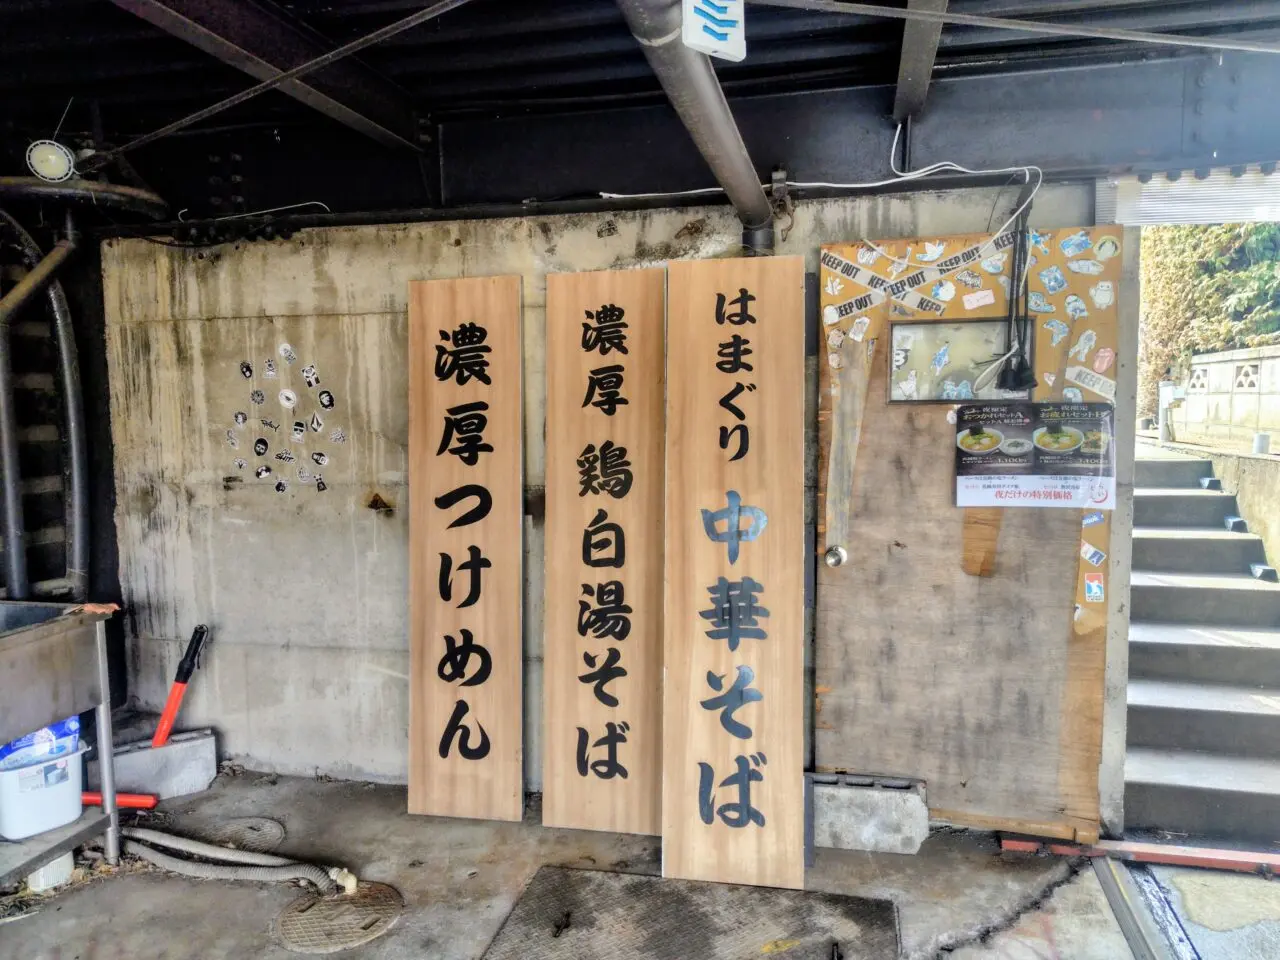 濃厚つけめん
濃厚 鶏白湯そば
はまぐり 中華そば
KEEP OUT
KEEP OUT
KEEP OUT
KEEP OUT
夜限定
おつかれセットA
夜限定
お疲れセットB
1,100円
1,100円
夜だけの特別価格